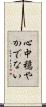 心中穏や
かでない